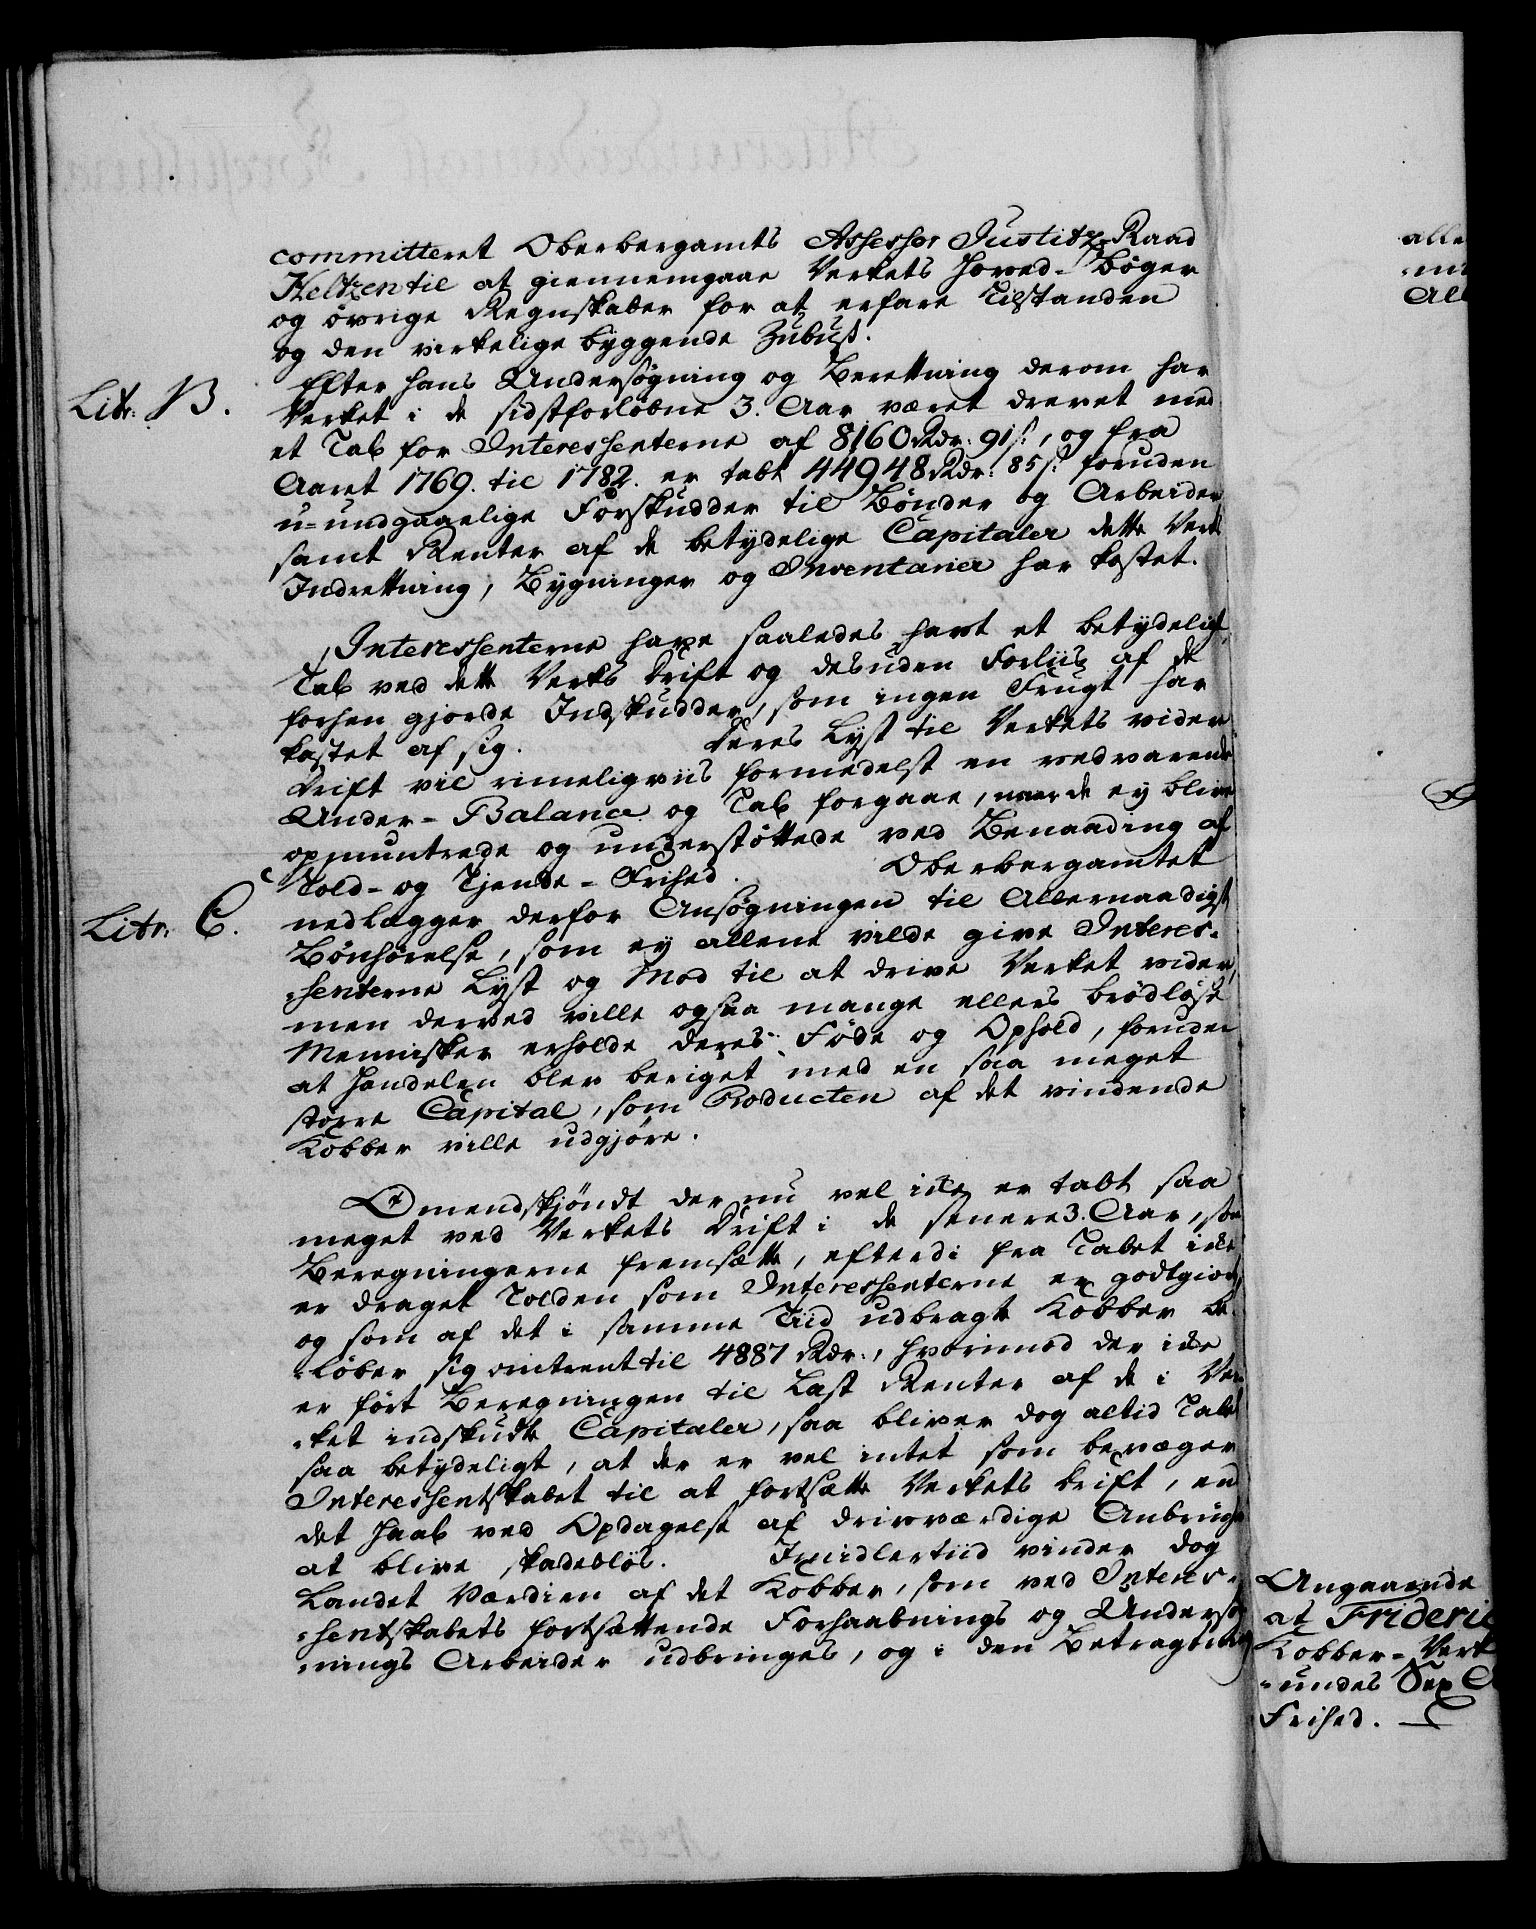 committeret Oberbergamts Assessor Justitz-Raad
Heltzen til at giennemgaae Verkets Hoved-Bøger
og øvrige Regnskaber for at erfare Tilstanden
og den virkelige byggende Zubus.
Litr. B.
Efter hans Undersøgning og Berettning derom har
Verket i de sidstforløbne 3. Aar været drevet med
et Tab for Interessenterne af 8160 Rdr: 91 s:, og fra
Aaret 1769. til 1782. er tabt 44948 Rdr: 85 s: foruden
u-undgaaelige Forskudder til Bønder og Arbeider
samt Renter af de betydelige Capitaler dette Verks
Indrettning, Bygninger og Inventarier har kostet.
Interessenterne have saaledes havt et betydeligt
Tab ved dette Verks Drift og desuden Forliis af de
forhen gjorde Indskudder, som ingen Frugt har
kastet af sig. Deres Lyst til Verkets videre
Drift vil rimeligviis formedelst en vedvarende
Under-Balance og Tab forgaae, naar de ey blive
opmuntrede og understøttede ved Benaading af
Told- og Tjende-Frihed. Oberbergamtet
Litr. C.
nedlægger derfor Ansøgningen til Allernaadigst
Bønhørelse, som ey allene vilde give Interes-
-senterne Lyst og Mod til at drive Verket videre,
men derved ville ogsaa mange ellers brødløse
Mennisker erholde deres Føde og Ophold, foruden
at Handelen blev beriget med en saa meget
større Capital, som Producten af det vindende
Kobber ville udgjøre.
Omendskjøndt der nu vel ikke er tabt saa
meget ved Verkets Drift i de senere 3. Aar, som
Beregningerne fremsætte, efterdi fra Tabet ikke
er draget Tolden som Interessenterne er godtgiort,
og som af det i samme Tiid udbragte Kobber be-
-løber sig omtrent til 4887 Rdr:, hvorimod der ikke
er ført Beregningen til Last Renter af de i Ver-
-ket indskudte Capitaler, saa bliver dog altid Tabet
saa betydeligt, at der er vel intet som bevæger
Interessentskabet til at fortsætte Verkets Drift, end
det Haab ved Opdagelse af drivværdige Anbrüche
at blive skadesløs. Imidlertiid vinder dog
Landet Værdien af det Kobber, som ved Interes-
-sentskabets fortsættende Forhaabnings og Undersøg-
-nings Arbeider udbringes, og i den Betragtning
alle
Angaaende
at Frideric
Kobber-Verk
-undes Sex
Frihed.